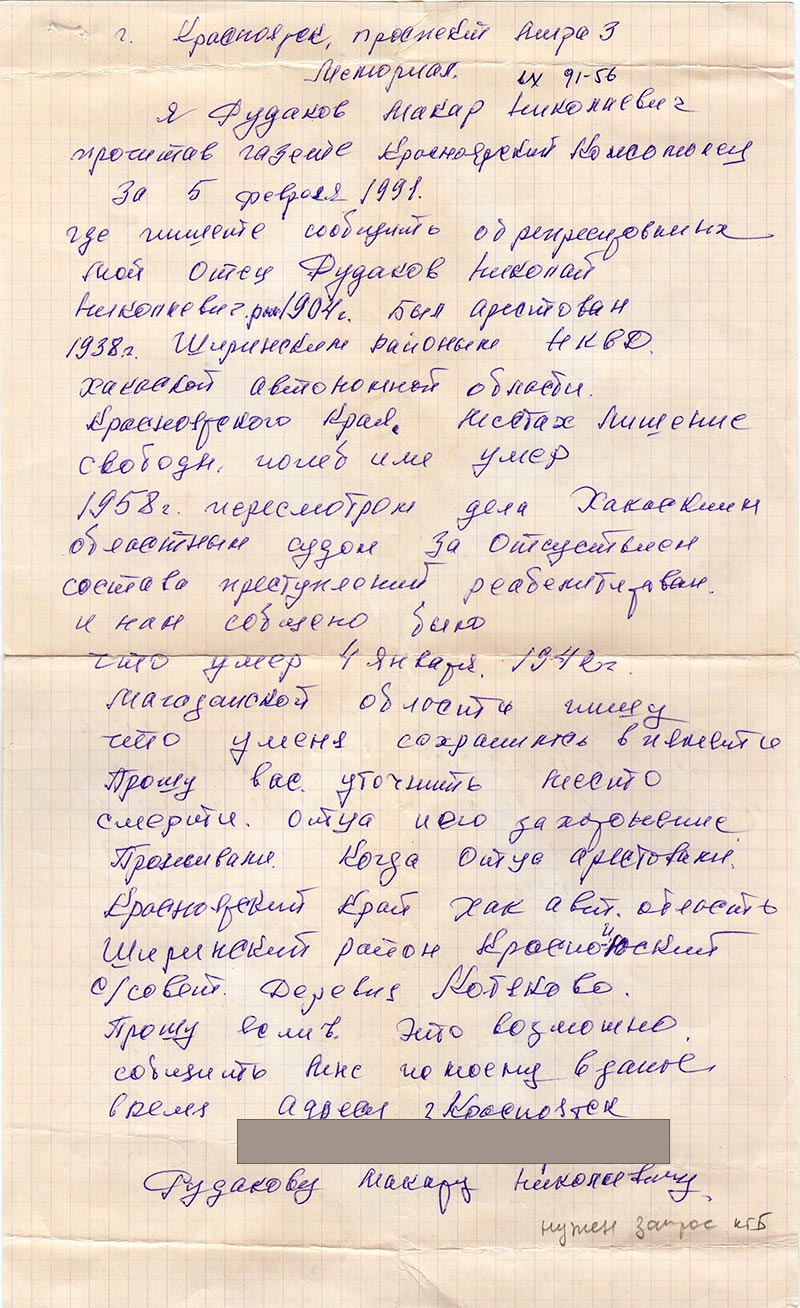 г. Красноярск, проспект Мира 3
Мемориал. вх 91-56
Я Рудаков Макар Николаевич
прочитав газете Красноярский Комсомолец
За 5 февраля 1991.
где пишете сообщить об репресированых
мой отец Рудаков Николай
Николаевич. рож 1904г. был арестован
1938г. Ширинским районым НКВД.
хакаской автономной области.
Красноярского Края. местах Лишение
свободы, погеб или умер
1958г. пересмотром дела Хакаским
областным судом за отсуствием
состава преступлений реабелитирован.
и нам собщено было
что умер 4 января. 1942г.
Магаданской области пишу
что уменя сохранилось впамяти
Прошу вас. уточнить место
смерти. отца иего захоронение
Проживали. Когда отца арестовали.
Красноярский Край Хак авт. область
Ширинский район Красно-Июский
с/совет. Деревня Котяково.
Прошу если. Это возможно.
собщить мне по моему вданое
время адреса г Красноярск
Рудакову Макару Николаевичу.
нужен запрос КГБ